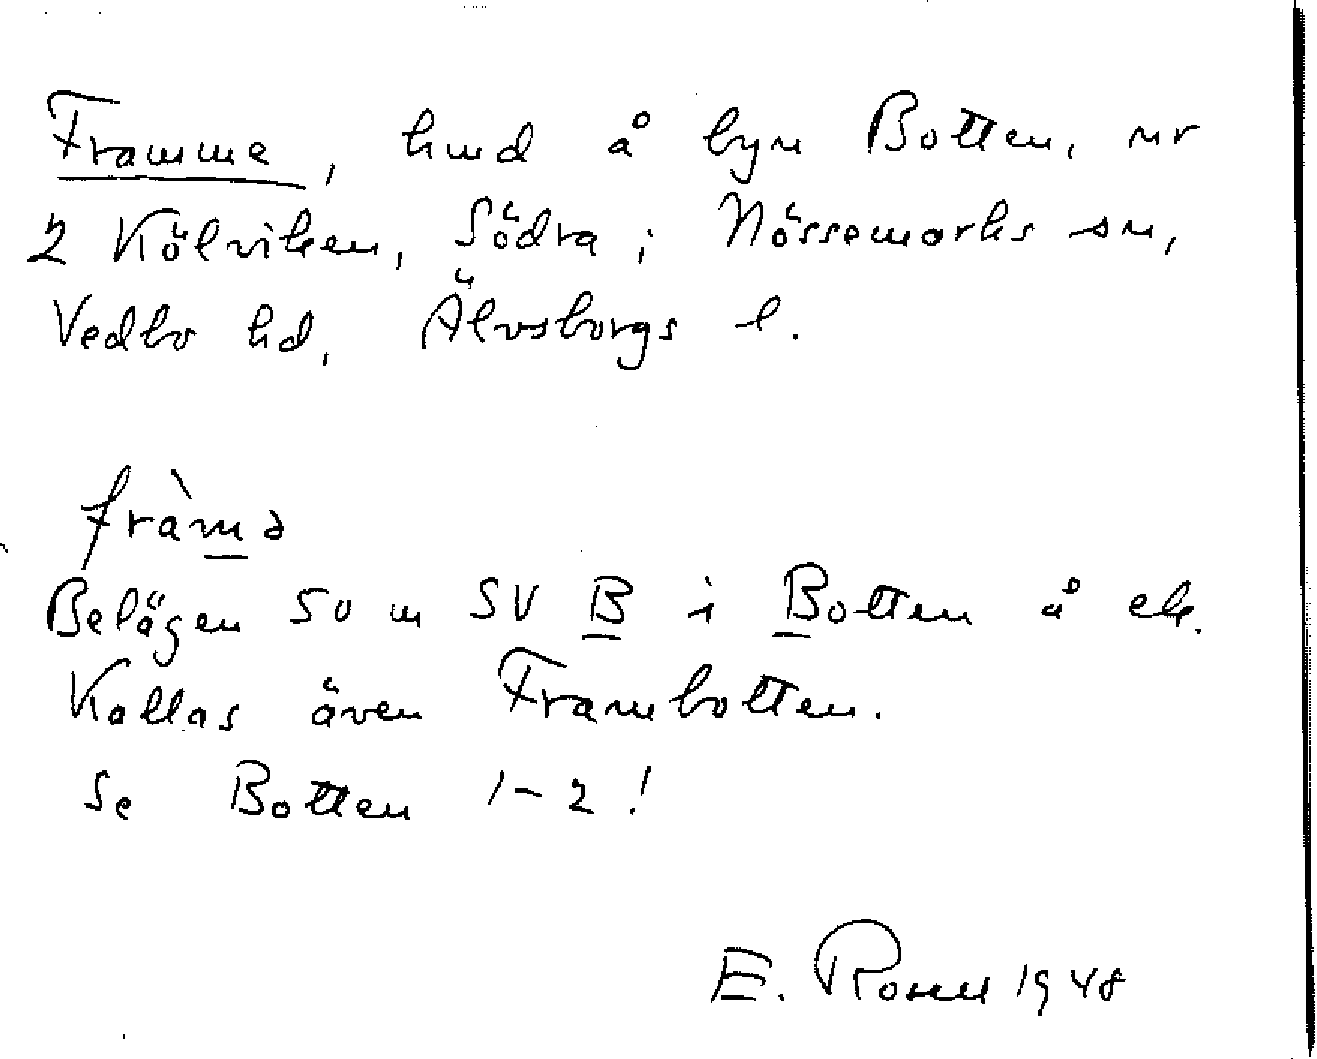 Framme, hmd å byn Botten, nr
2 Kölviken, Södra i Nössemarks sn,
Vedbo hd, Älvsborgs l.
fràmə
Belägen 50 m SV B i Botten å ek.
Kallas även Frambotten.
Se Botten 1-2!
E. 1948